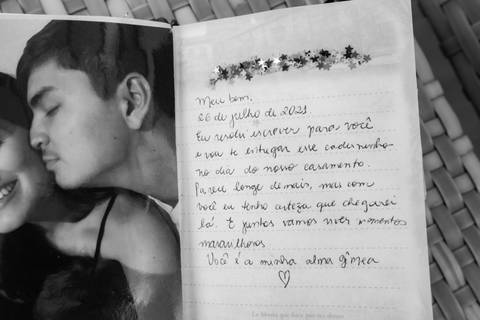 Meu bem,
26 de julho de 2021.
Eu resolvi escrever para você
e vou te entregar esse caderninho
no dia do nosso casamento.
Parece longe demais, mas com
você eu tenho certeza que chegarei
lá. E juntos vamos viver momentos
maravilhosos
Você é a minha alma gêmea